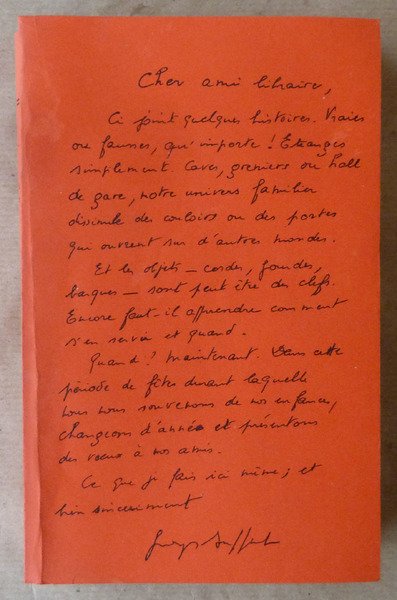 Cher ami libraire,
Ci joint quelques histoires. Vraies
ou fausses, qu'importe ! Etranges
simplement. Caves, greniers ou hall
de gare, notre univers familier
dissimule des couloirs ou des portes
qui ouvrent sur d'autres mondes.
Et les objets — cordes,
barques — sont peut être des clefs.
Encore faut-il apprendre comment
s'en servir et quand.
Quand ? Maintenant. Dans cette
période de fêtes durant laquelle
nous nous souvenons de nos enfances,
changeons d'année et présentons
des voeux à nos amis.
Ce que je fais ici même ; et
bien sincèrement